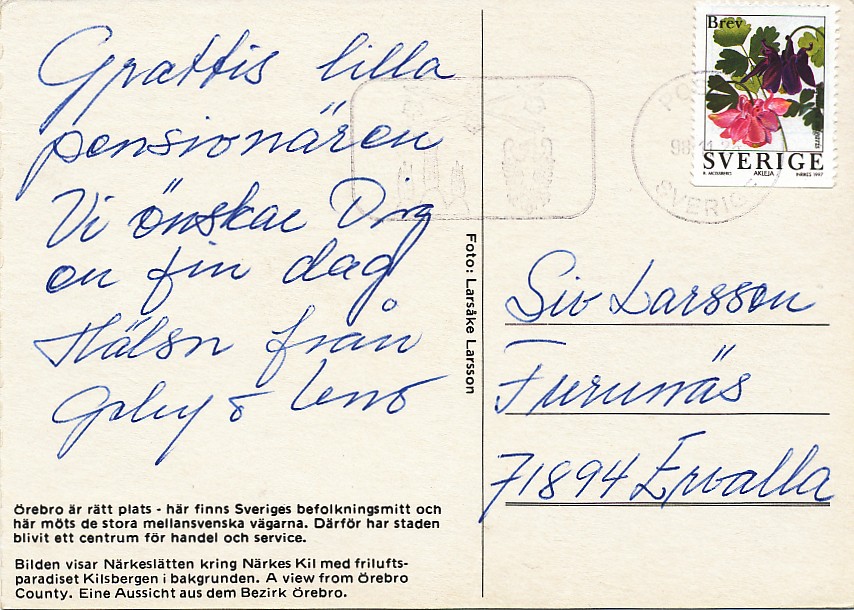 Grattis lilla
pensionären
Vi önskar Dig
en fin dag
Hälsn från
Örebro är rätt plats - här finns Sveriges befolkningsmitt och
här möts de stora mellansvenska vägarna. Därför har staden
blivit ett centrum för handel och service.
Bilden visar Närkeslätten kring Närkes Kil med frilufts-
paradiset Kilsbergen i bakgrunden. A view from Örebro
County. Eine Aussicht aus dem Bezirk Örebro.
Foto: Larsåke Larsson
Brev
SVERIGE
AKLEJA
SVERIGE
Siv Larsson
Furunäs
71894 Ervalla